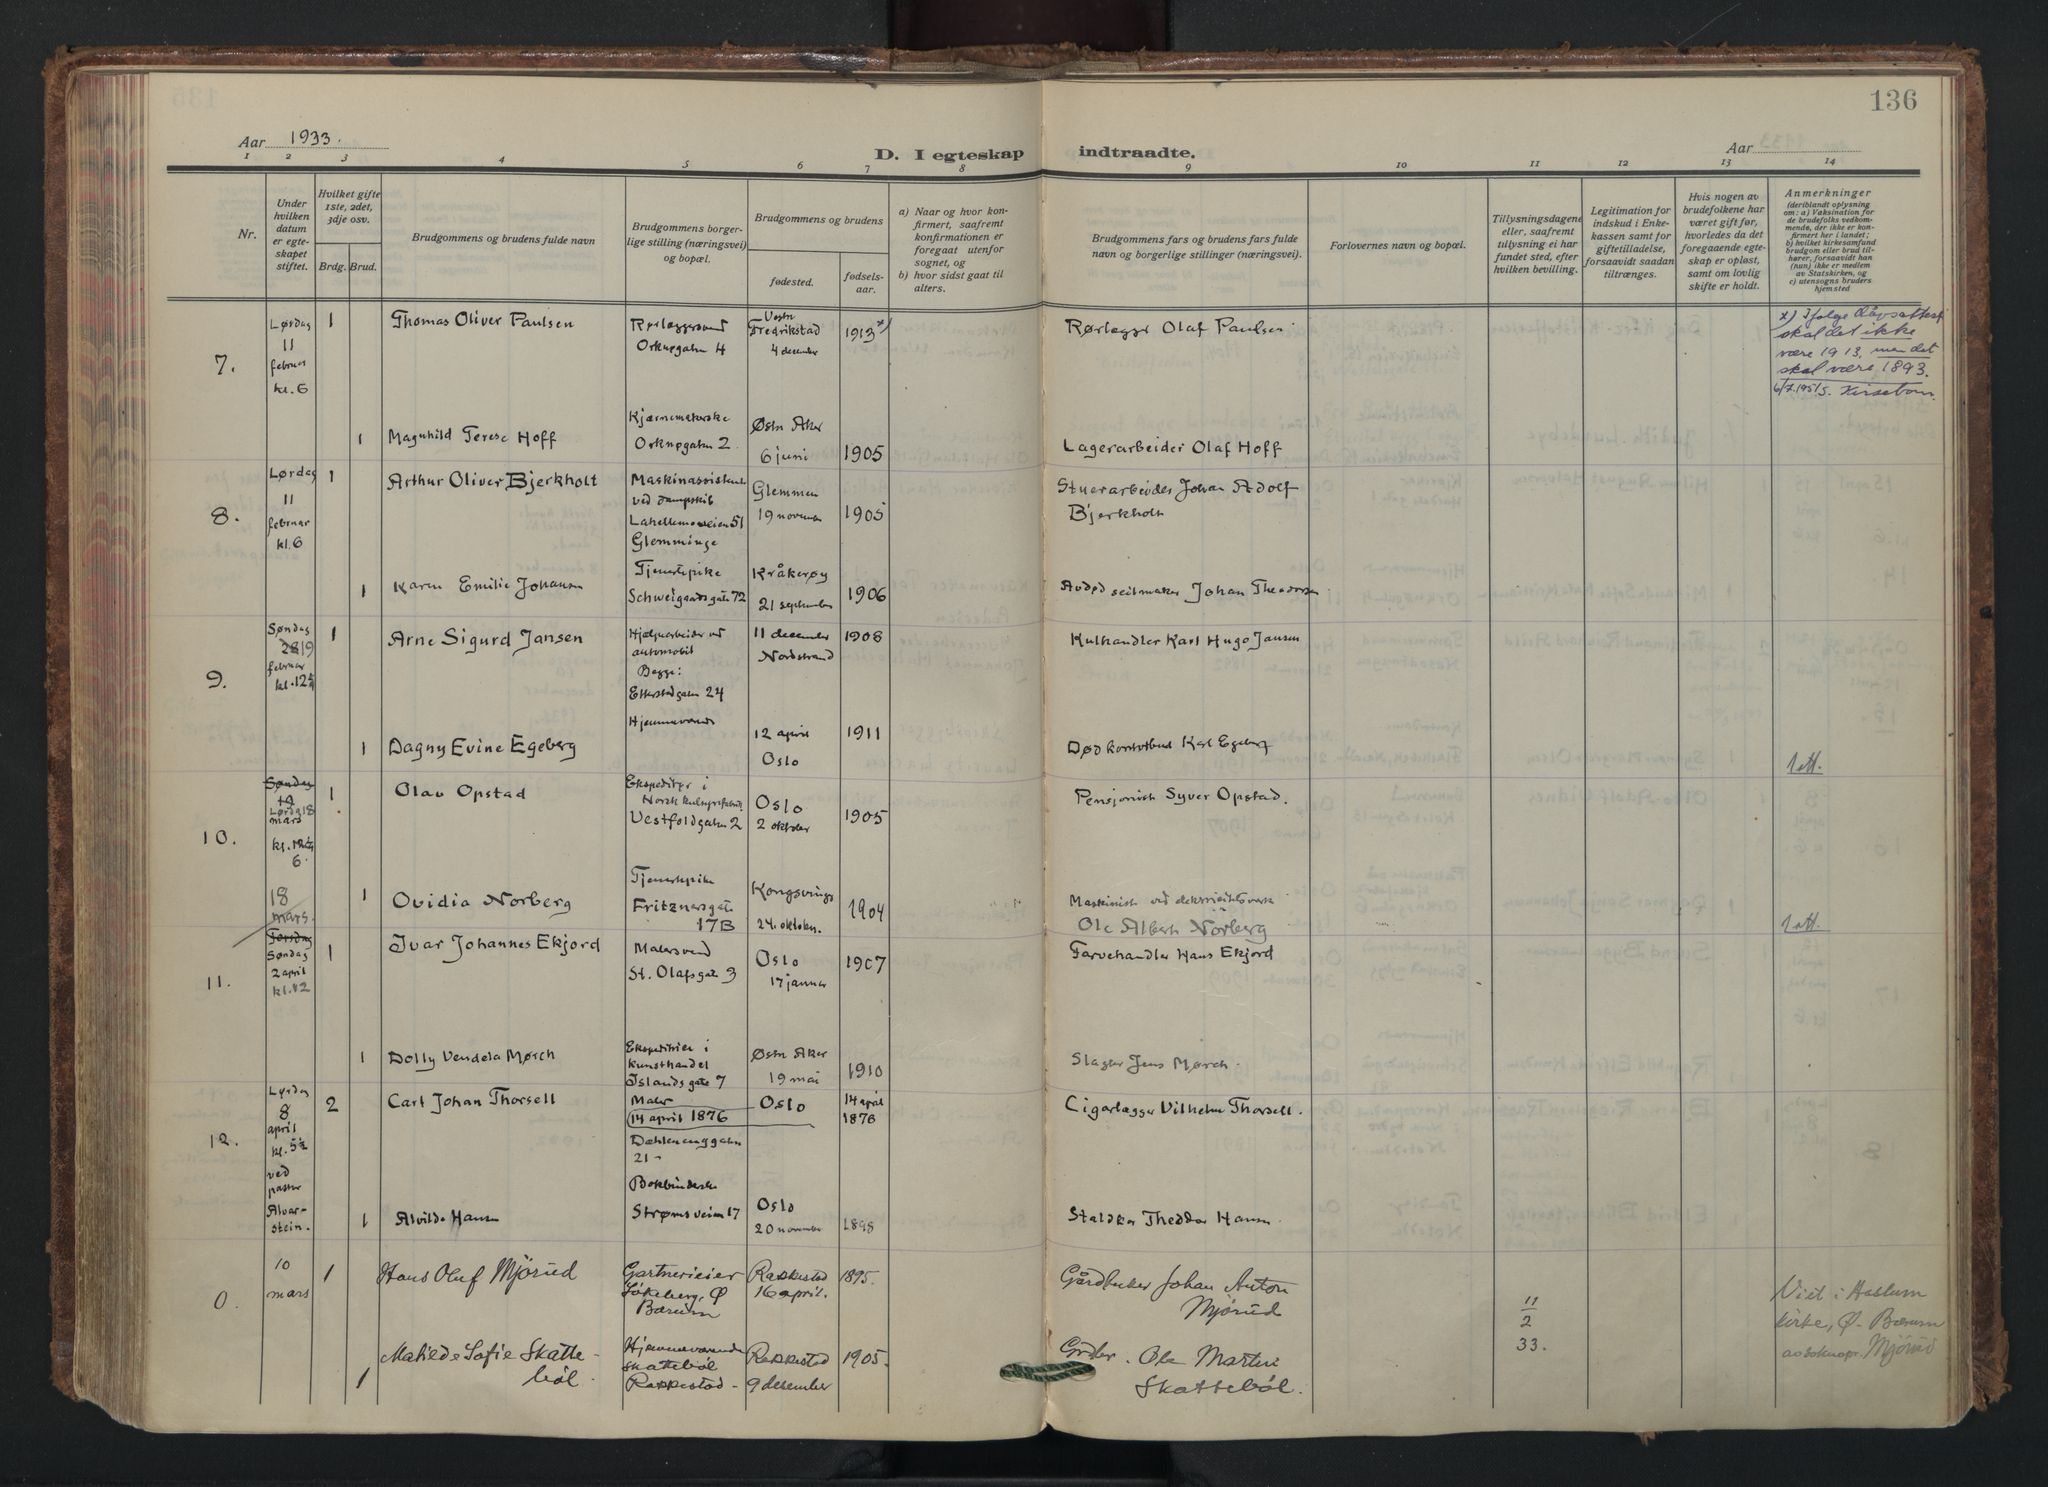 136
Aar 1933.
D. I egteskap indtraadte.
Aar
1 2 3 4 5 6 7 8 9 10 11 12 13 14
Nr.
Under hvilken datum er egteskapet stiftet.
Hvilket gifte 1ste, 2det, 3dje osv.
Brdg. Brud.
Brudgommens og brudens fulde navn
Brudgommens borgerlige stilling (næringsvei) og bopæl.
Brudgommens og brudens
fødested.
fødselsaar.
a) Naar og hvor konfirmert, saafremt konfirmationen er foregaat utenfor sognet, og
b) hvor sidst gaat til alters.
Brudgommens fars og brudens fars fulde navn og borgerlige stillinger (næringsvei).
Forlovernes navn og bopæl.
Tillysningsdagene eller, saafremt tillysning ei har fundet sted, efter hvilken bevilling.
Legitimation for indskud i Enkekassen samt for giftetilladelse, forsaavidt saadan tiltrænges.
Hvis nogen av brudefolkene har været gift før, hvorledes da det foregaaende egteskap er opløst, samt om lovlig skifte er holdt.
Anmerkninger
(deriblandt oplysning om: a) Vaksination for de brudefolks vedkommende, der ikke er konfirmert her i landet; b) hvilket kirkesamfund brudgom eller brud tilhører, forsaavidt han (hun) ikke er medlem av Statskirken, og c) utensogns bruders hjemsted
7.
Lørdag 11 februar kl. 6
1
Thomas Oliver Paulsen
Rørlæggersvend
Orknøgaten 4
Vestre Fredrikstad
4 december
1913 x)
Rørlægger Olaf Paulsen
x) Ifølge dåpsattest
skal det ikke
være 1913, men det
skal være 1893.
6/7.1951. Kirsebom.
1
Magnhild Terese Hoff
Orknøgaten 2
Østre Aker
6 juni
1905
Lagerarbeider Olaf Hoff
8.
Lørdag 11 februar kl. 6
1
Arthur Oliver Bjerkholt
Maskinassistent
ved dampskib
Lahellemoveien 51
Glemminge
Glemmen
19 november
1905
Stuerarbeider Johan Adolf
Bjerkholt
1
Karen Emilie Johansen
Tjenestepike
Schweigaardsgate 72
Kråkerøy
21 september
1906
Avdød seilmaker Johan Theodorsen
9.
Søndag 19 februar kl. 12
1
Arne Sigurd Jansen
Hjælpearbeider ved
automobil
Begge:
Etterstadgaten 24
11 december
Nordstrand
1908
Kulhandler Karl Hugo Jansen
1
Dagny Evine Egeberg
Hjemmeværende
12 april
Oslo
1911
Død kontorbud Karl Egeberg
1 att.
10.
Søndag 19
Lørdag 18
mars
kl. 6
1
Olav Opstad
Ekspeditør i
Vestfoldgaten 2
Oslo
2 oktober
1905
Pensjonist Syver Opstad.
18 mars.
1
Ovidia Norberg
Tjenestepike
Fritznersgate
17B
Kongsvinger
24. oktober.
1904
Maskinist ved elektricitetsverk
Ole Albert Norberg
1 att.
11.
Torsdag
Søndag
2 april
kl. 12
1
Ivar Johannes Ekjord
Malersvend
St. Olafsgate 3
Oslo
17 januar
1907
Farvehandler Hans Ekjord
1
Dolly Vendela Mørch
Ekspeditrise i
kunsthandel
Islands gate 7
Østre Aker
19 mai
1910
Slagter Jens Mørch.
12.
Lørdag
8
april
kl. 5½
ved
pastor
Alvarstein.
2
Carl Johan Thorsell
Maler
14 april 1876
Dæhlenenggaten
21
Oslo
14 april
1876
Cigarlægger Vilhelm Thorsell.
1
Alvilde Hansen
Bokbinderske
Strømsveien 17
Oslo
20 november
1898
Theodor Hansen
0.
10
mars
1
Hans Oluf Mjørud
Gartnerieier
Ø
Bærum
Rakkestad
16 april.
1895.
Gårdbruker Johan Anton
Mjørud
11
2
33.
Viet i Haslum
kirke, Ø. Bærum
av sokнepr. Mjørud
1
Matilde Sofie Skattebøl.
Hjemmeværende
Skattebøl
Rakkestad
Rakkestad
9 desember
1905.
Ole Martin
Skattebøl.